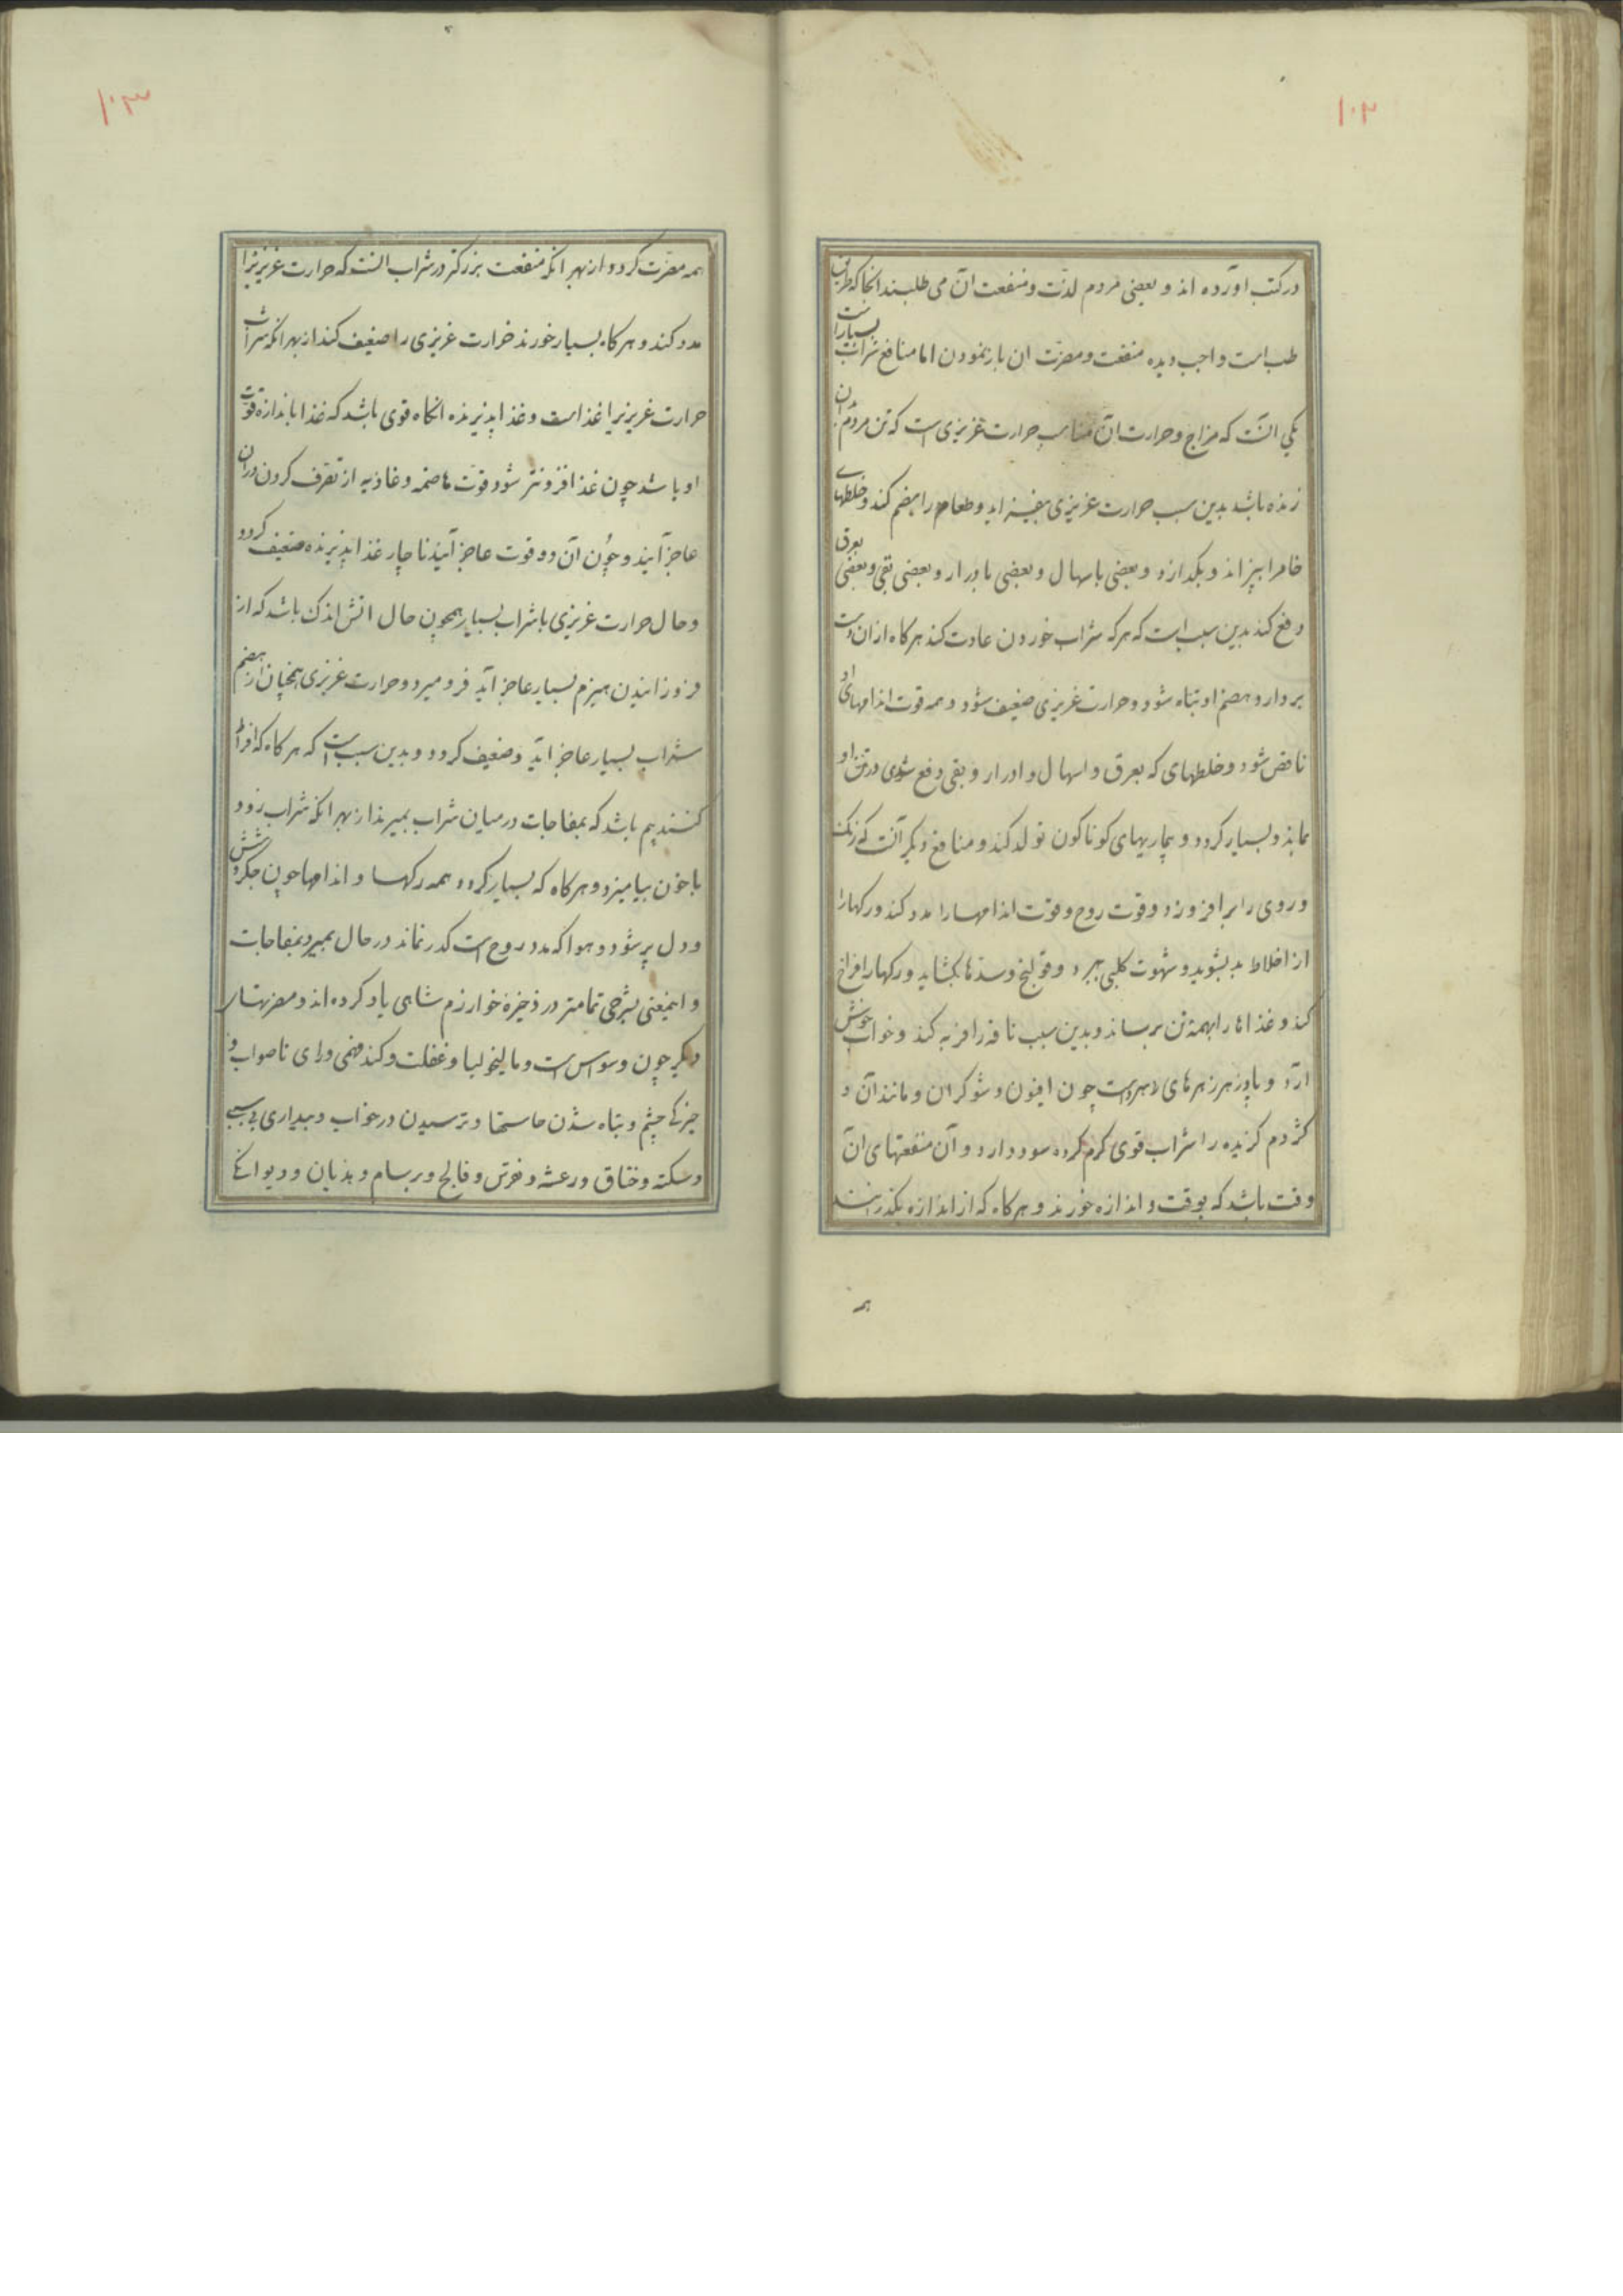 ۱۰۲
در کتب آورده اند و بعضی مردم لذت و منفعت آن می طلبند انجا که طریق
طب است واجب دیده منفعت و مضرت ان باز نمودن اما منافع شراب بسیار است
یکی انست که مزاج و حرارت آن مناسب حرارت غریزی است که تن مردم بدان
زنده باشد بدین سبب حرارت غریزی بیفزاید و طعام را هضم کند و خلطهای
خام را بپزاند و بکدازد و بعضی باسهال و بعضی بادرار و بعضی بقی و بعضی بعرق
دفع کند بدین سبب است که هر که شراب خوردن عادت کند هرکاه از ان دست
بردارد هضم او تباه شود و حرارت غریزی ضعیف شود و همه قوت اندامهای او
ناقص شود و خلطهای که بعرق و اسهال و ادرار و بقی دفع شدی در تن او
بماند و بسیار کردد و بیماریهای کوناکون تولد کند و منافع دیکر آنست که رنک
و روی را برافروزد و قوت روح و قوت اندامها را مدد کند و رکها را
از اخلاط بد بشوید و شهوت کلبی ببرد و قولنج و سدها بکشاید و رکها را فراخ
کند و غذاها را بهمه تن برساند و بدین سبب ناقه را فربه کند و خواب خوش
آرد و پادزهر زهرهای سردست چون افیون و شوکران و مانند آن و
کژدم کزیده را شراب قوی کرم کرده سود دارد و آن منفعتهای ان
وقت باشد که بوقت و اندازه خورند و هرکاه که از اندازه بکذرانند
همه
۱۰۳
همه مضرت کردد از بهر انکه منفعت بزرکتر در شراب انست که حرارت غریزیرا
مدد کند و هرکاه بسیار خورند حرارت غریزی را ضعیف کند از بهر انکه شراب
حرارت غریزیرا غذا است و غذا پذیرنده انکاه قوی باشد که غذا باندازه قوت
او باشد چون غذا افزونتر شود قوت هاضمه و غاذیه از تصرف کردن دران
عاجز آیند و چون آن دو قوت عاجز آیند ناچار غذا پذیرنده ضعیف کردد
و حال حرارت غریزی با شراب بسیار همچون حال اتش اندک باشد که از
فروزانیدن هیزم بسیار عاجز آید فرو میرد و حرارت غریزی همچنان از هضم
شراب بسیار عاجز آید و ضعیف کردد و بدین سبب است که هرکاه که افراط
کنند بیم باشد که بمفاجات در میان شراب بمیرند از بهر انکه شراب زود
با خون بیامیزد و هرکاه که بسیار کردد همه رکها و اندامها چون جکر و شش
و دل پر شود و هوا که مدد روح است کدر نماند در حال بمیرد بمفاجات
و اینمعنی بشرحی تمامتر در ذخیره خوارزم شاهی یاد کرده اند و مضرتهای
دیکر چون وسواس است و مالیخولیا و غفلت و کند فهمی و رای ناصواب و
خیرکی چشم و تباه شدن حاستها و ترسیدن در خواب و بیداری بی سببی
و سکته و خناق و رعشه و نقرس و فالج و برسام و هذیان و دیوانکی